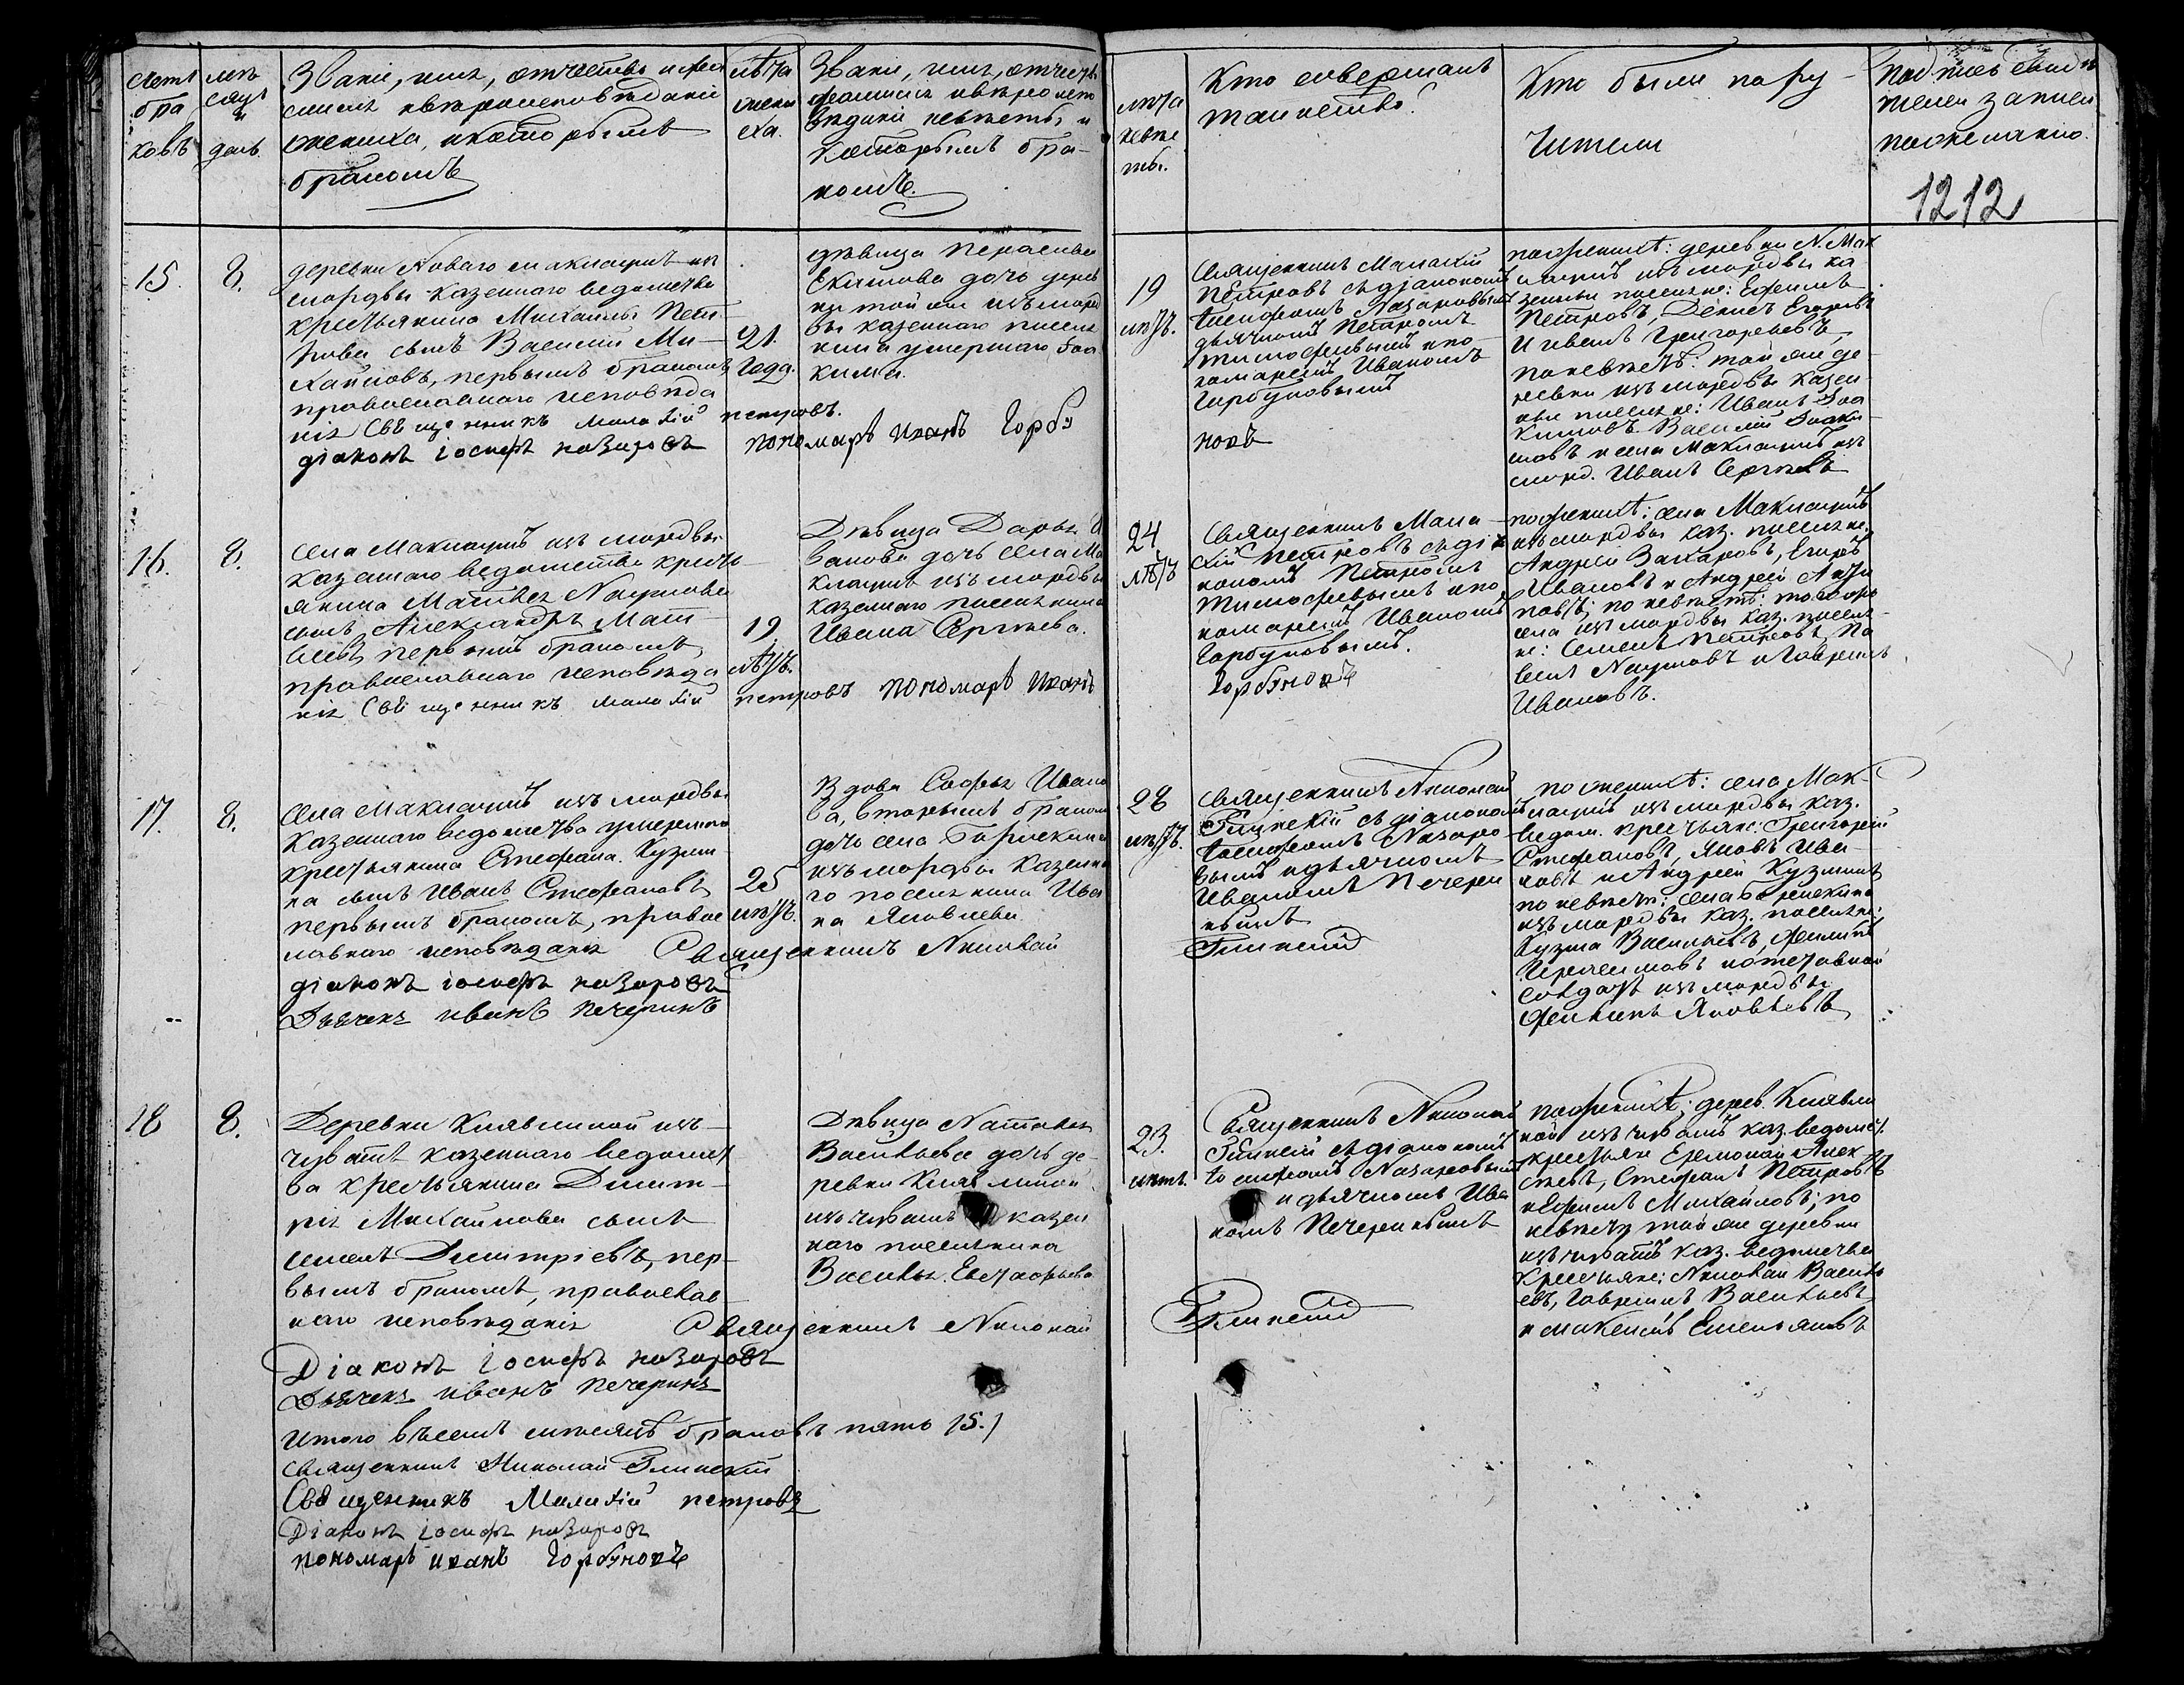 Счетъ
бра
ковъ
мѣ
сяцъ
и
день
Званіе, имя, отчество и фа
милія и вѣроисповѣданіе
жениха, и которымъ
бракомъ
лѣта
жени
ха.
Званіе, имя, отчество
фамилія и вѣроиспо
вѣданіе невѣсты и
которымъ бра-
комъ.
лѣта
невѣс
ты.
Кто совершалъ
таинство?
Кто были пору-
чители
Подпись свидѣ
телей записи
по желанію.
1212
15.
8.
деревни Новаго Маклауша из
мордвы казеннаго ведомства
крестьянина Михаилы Пет-
рова сынъ Василій Ми-
хайловъ, первымъ бракомъ
православнаго исповѣда
нія Свещенникъ Малахій петровъ.
діаконъ іосифъ назаровъ пономарь Иванъ Горбу
21.
года.
дѣвица Параскева
Екимова дочь дерев
ни той же изъ морд
вы казеннаго поселя
нина умершаго Іоа
кима.
19
лѣтъ.
Священникъ Малахій
Петровъ съ діакономъ
Іосифомъ Назаровымъ
дьячкомъ Петромъ
Тимофеевымъ и по
номаремъ Иваномъ
Горбуновымъ
новъ
по женихѣ: деревни Н. Мак
лаушъ изъ мордвы ка
зенны поселяне: Ефимъ
Петровъ, Денисъ Егоровъ
и Иванъ Григорьевъ,
по невѣстѣ: той же де
ревни изъ мордвы казен
ные поселяне: Иванъ Іоа
кимовъ Василій Іоаки
мовъ и села Маклаушъ из
морд. Иванъ Сергѣевъ
16.
8.
села Маклаушъ изъ мордвы
казеннаго ведомства кресть-
янина Матвея Наумова
сынъ Александръ Мат-
веевъ первымъ бракомъ
православнаго исповѣда
нія Свещенникъ Малахій петровъ пономарь Иванъ
19.
лѣтъ.
Дѣвица Дарья И
ванова дочь села Ма
клауша изъ мордвы
казеннаго поселянина
Ивана Сергѣева.
24
лѣтъ
Священникъ Мала-
хій Петровъ съ дія
кономъ Петромъ
Тимофеевымъ и по
номаремъ Иваномъ
Горбуновымъ.
Горбуновъ
по женихѣ: села Маклаушъ
изъ мордвы каз. поселяне:
Андрей Захаровъ, Егоръ
Ивановъ и Андрей Анти
повъ; по невѣстѣ: того жъ
села изъ мордвы каз. поселя-
не: Семенъ Петровъ, Па
велъ Наумовъ и Гаврилъ
Ивановъ.
17.
8.
Села Маклаушъ изъ мордвы
казеннаго ведомства умершаго
крестьянина Стефана Кузми-
на сынъ Иванъ Стефановъ
первымъ бракомъ, правос
лавнаго исповѣданія Священникъ Николай
діаконъ іосифъ назаровъ
Дьячекъ иванъ Печеринъ
25
лѣтъ.
Вдова Софья Ивано
ва, вторымъ бракомъ
дочь села
изъ мордвы казенна
го поселянина Ива
на Яковлева
28
лѣтъ.
Священникъ Николай
Глинскій съ діакономъ
Іосифомъ Назаро-
вымъ и дьячкомъ
Иваномъ Печери
нымъ
Глинскій
по женихѣ: села Мак-
лаушъ изъ мордвы каз.
ведом. крестьяне: Григорій
Стефановъ, Яковъ Ива-
новъ и Андрей Кузминъ
по невѣстѣ: села
изъ мордвы каз. поселяне:
Кузма Васильевъ, Филипъ
Герасимовъ и отставной
солдатъ изъ мордвы
Филипъ Яковлевъ
18
8.
Деревни Клявлиной изъ
чувашъ казеннаго ведомст
ва крестьянина Димит-
рія Михайлова сынъ
Семенъ Димитріевъ, пер-
вымъ бракомъ, православ-
наго исповѣданія Священникъ Николай
Діаконъ іосифъ назаровъ
Дьячекъ иванъ Печеринъ
Дѣвица Наталья
Васильева дочь де-
ревни Клявлиной
изъ чувашъ казен
наго поселянина
Василья Евстафьева
23.
лѣтъ.
Священникъ Николай
Глинскій съ діакономъ
Іосифомъ Назаровымъ
и дьячкомъ Ива
номъ Печеринымъ
Глинскій
по женихѣ; дерев. Клявли
ной изъ чувашъ каз. ведомст.
крестьяне Ермолай Алек
сѣевъ, Стефанъ Петровъ
и Ефимъ Михайловъ; по
невѣстѣ той же деревни
изъ чувашъ каз. ведомства
крестьяне: Николай Василь
евъ, Гаврилъ Васильевъ
и Максимъ Емельяновъ
Итого въ семъ месяцѣ браковъ пять (5.)
Священникъ Николай Глинскій
Свещенникъ Малахій петровъ
Діаконъ іосифъ назаровъ
пономарь иванъ Горбуновъ